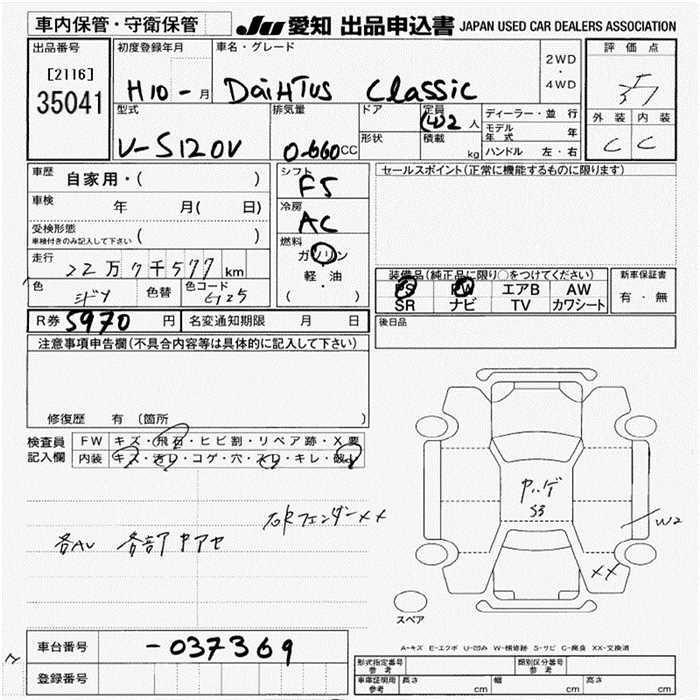 車内保管・守衛保管
JU 愛知 出品申込書 JAPAN USED CAR DEALERS ASSOCIATION
出品番号 [2116] 35041
初度登録年月 H10 - 月
車名・グレード DaiHTus Classic
2WD・4WD
評価点
外装 C 内装 C
型式 V-S120V
排気量 0-660CC
ドア
形状
定員 (4)2人
積載 kg
ディーラー・並行
モデル年式 年
ハンドル 左・右
車歴 自家用・( )
車検 年 月( 日)
受検形態 ( )
車検付きのみ記入して下さい
走行 22万7千577km
色 色替 色コード
シフト F5
冷房 AC
燃料 ガソリン・軽・油
( ・ )
セールスポイント(正常に機能するものに限ります)
装備品(純正品に限り○をつけてください)
PS PW エアB AW
SR ナビ TV カワシート
新車保証書 有・無
R券 5970円 名変通知期限 月 日
後日品
注意事項申告欄(不具合内容等は具体的に記入して下さい)
修復歴 有 (箇所 )
検査員記入欄
FW キズ・飛石・ヒビ割・リペア跡・X要
内装 キズ・汚れ・コゲ・穴・スレ・キレ・破れ
右Rフェンダーxx
各AU 各部ヤアセ
ヤハゲ
S3
W2
XX
スペア
A-キズ E-エクボ U-凹み W-補修跡 S-サビ C-腐食 XX-交換済
車台番号 -037369
登録番号
形式指定番号 参考
類別区分番号 参考
車庫証明用 参考 長さ cm 幅 cm 高さ cm